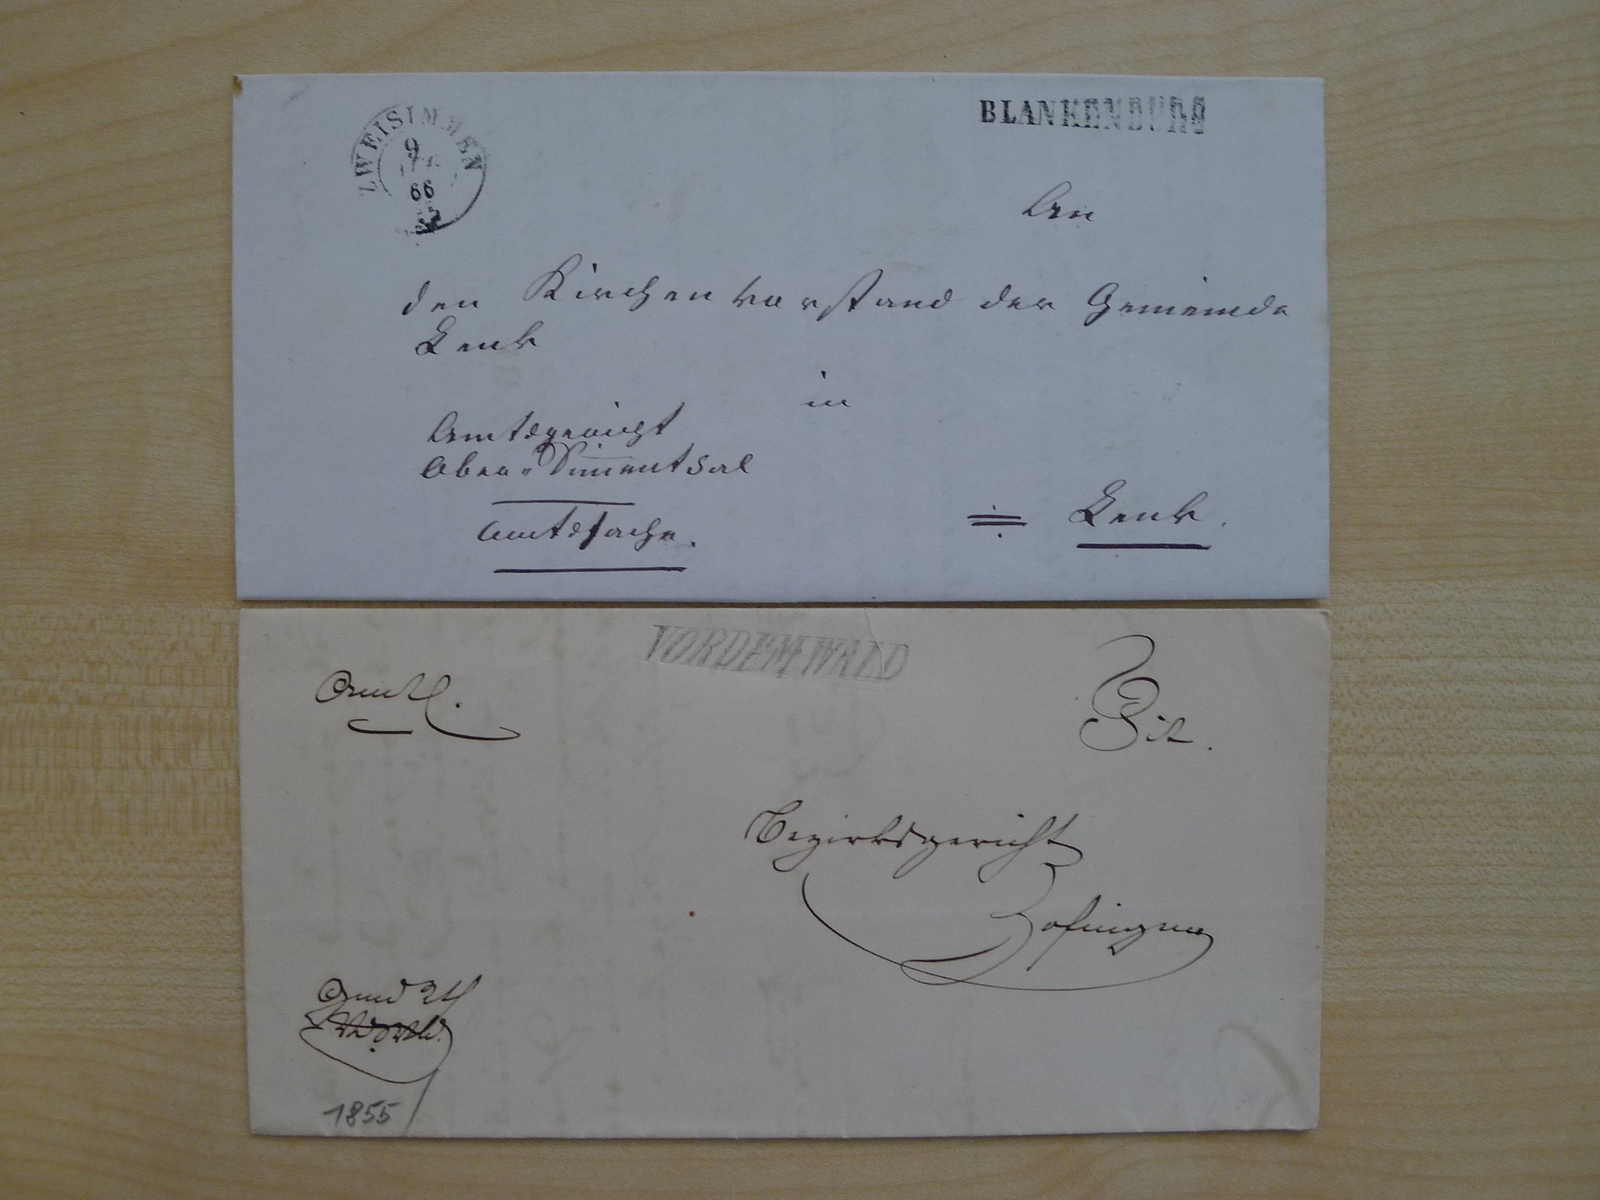 ZWEISIMMEN
9
66
BLANKENBURG
An
den Kirchenvorstand der Gemeinde
Lenk
in
Amtsgericht
Ober-Simmenthal
Amtssache.
Lenk.
VORDEMWALD
Amtl.
Tit.
Bezirksgericht
Zofingen
1855